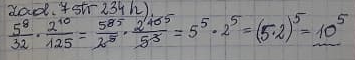 zad. 7 str 234 h)
5⁸/32 · 2¹⁰/125 = 5⁸⁵/2⁵ · 2¹⁰⁵/5³ = 5⁵ · 2⁵ = (5·2)⁵ = 10⁵